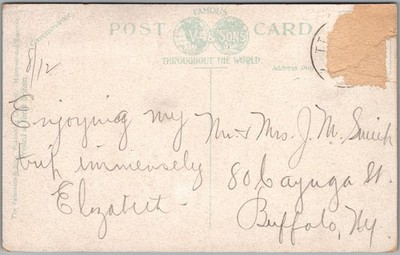 FAMOUS
POST CARD
V. & SONS
THROUGHOUT THE WORLD.
8/12
Enjoying my
trip immensely
Elizabeth.
Mr & Mrs. J. M. Smith
80 Cayuga St.
Buffalo, Ny.